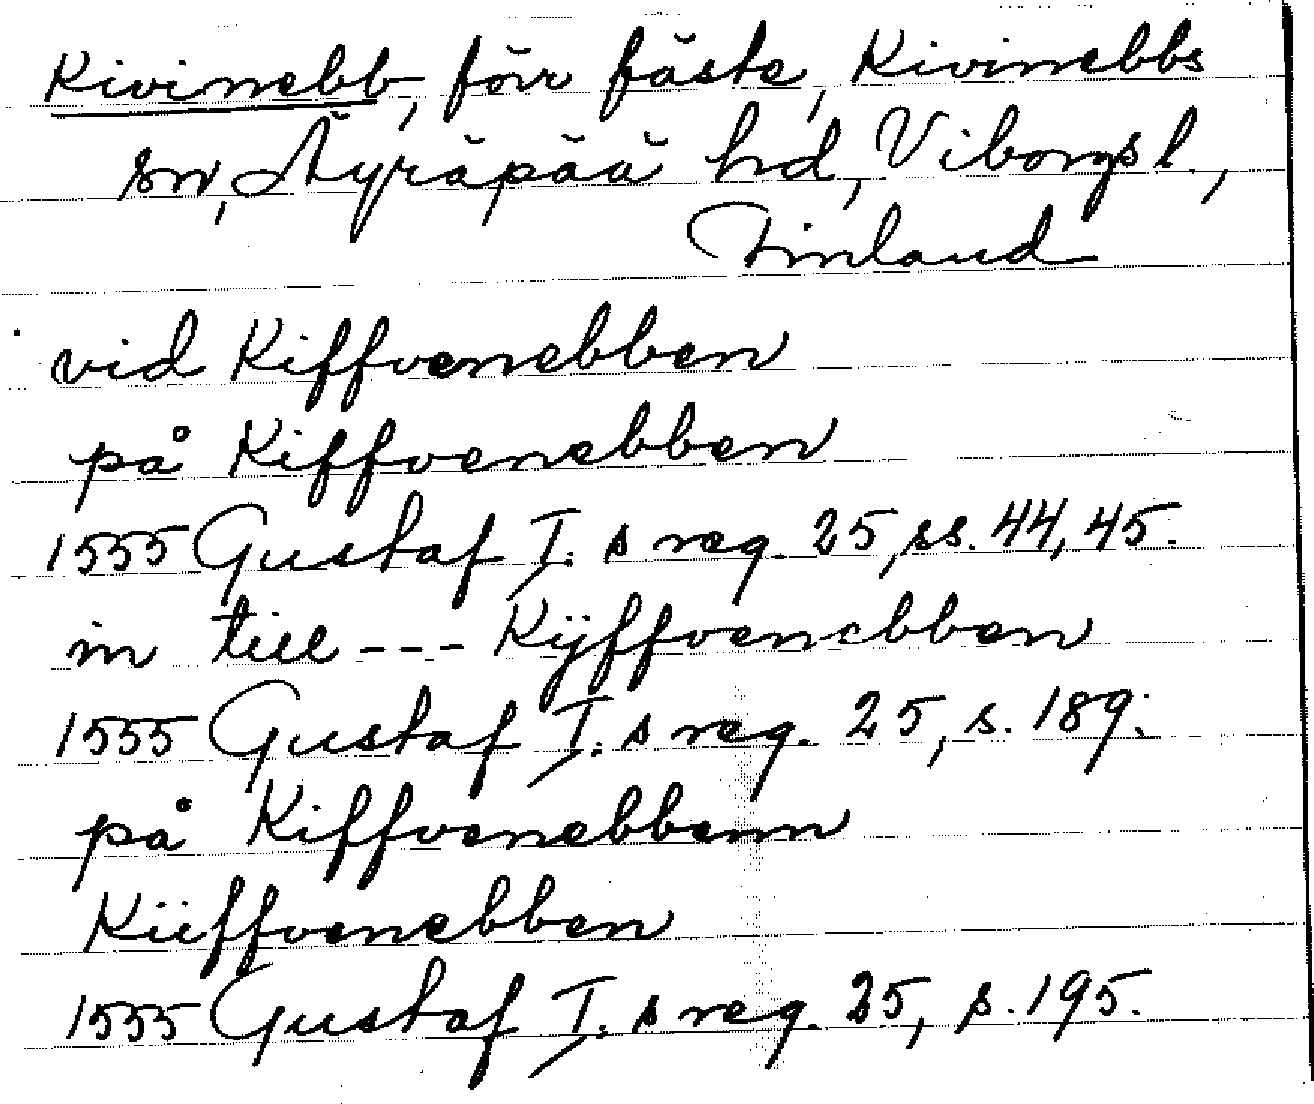 Kivinebb, förr fäste, Kivinebbs
sn, Äyräpää hd, Viborgs l.,
Finland
vid Kiffvenebben
på Kiffvenebben
1555 Gustaf I:s reg. 25, ss. 44, 45.
in till --- Kÿffvenebben
1555 Gustaf I:s reg. 25, s. 189.
på Kiffvenebbenn
Kiiffvenebben
1555 Gustaf I:s reg. 25, s. 195.